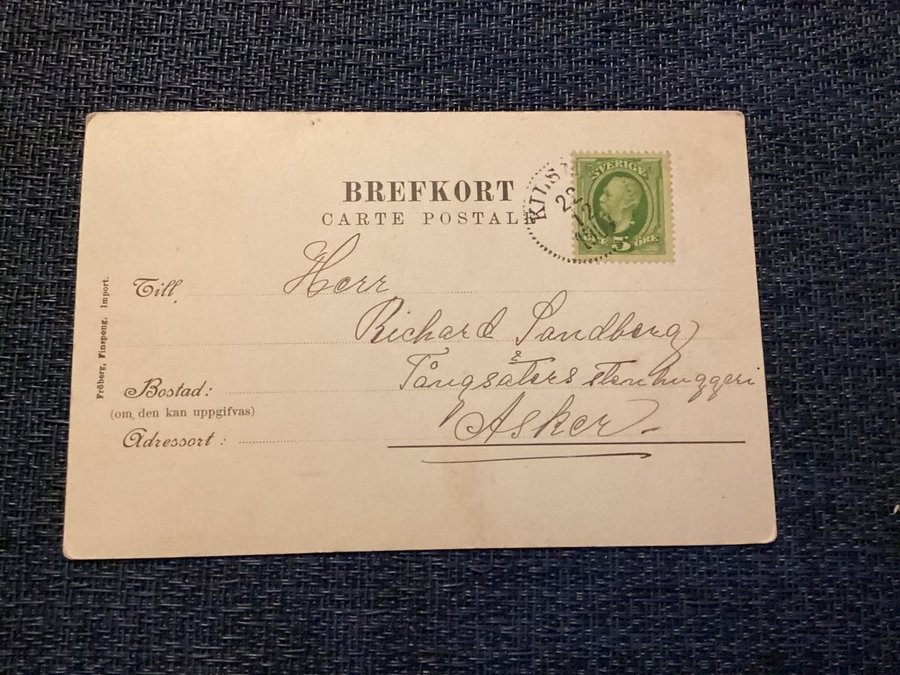 BREFKORT
CARTE POSTALE
SVERIGE
5 ÖRE
22
12
Till
Herr
Richard Sandberg
Tångsäters stenhuggeri
Bostad:
(om den kan uppgifvas)
Adressort:
Asker
Fröberg, Finspong. Import.